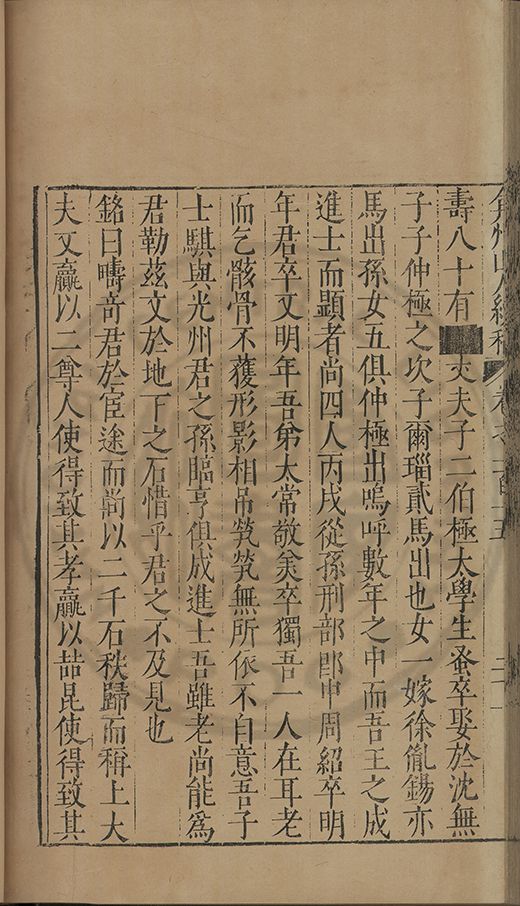 弇州山人續稿 卷之一百十五 二
壽八十有 丈夫子二伯極太學生蚤卒娶於沈無
子子仲極之次子爾瑙貳馬出也女一嫁徐胤錫亦
馬出孫女五俱仲極出嗚呼數年之中而吾王之成
進士而顯者尚四人丙戌從孫刑部郎中周紹卒明
年君卒又明年吾弟太常敬美卒獨吾一人在耳老
而乞骸骨不獲形影相吊煢煢無所依不自意吾子
士騏與光州君之孫臨亨俱成進士吾雖老尚能為
君勒茲文於地下之石惜乎君之不及見也
銘曰疇奇君於宦途而尚以二千石秩歸而稱上大
夫又羸以二尊人使得致其孝羸以喆昆使得致其